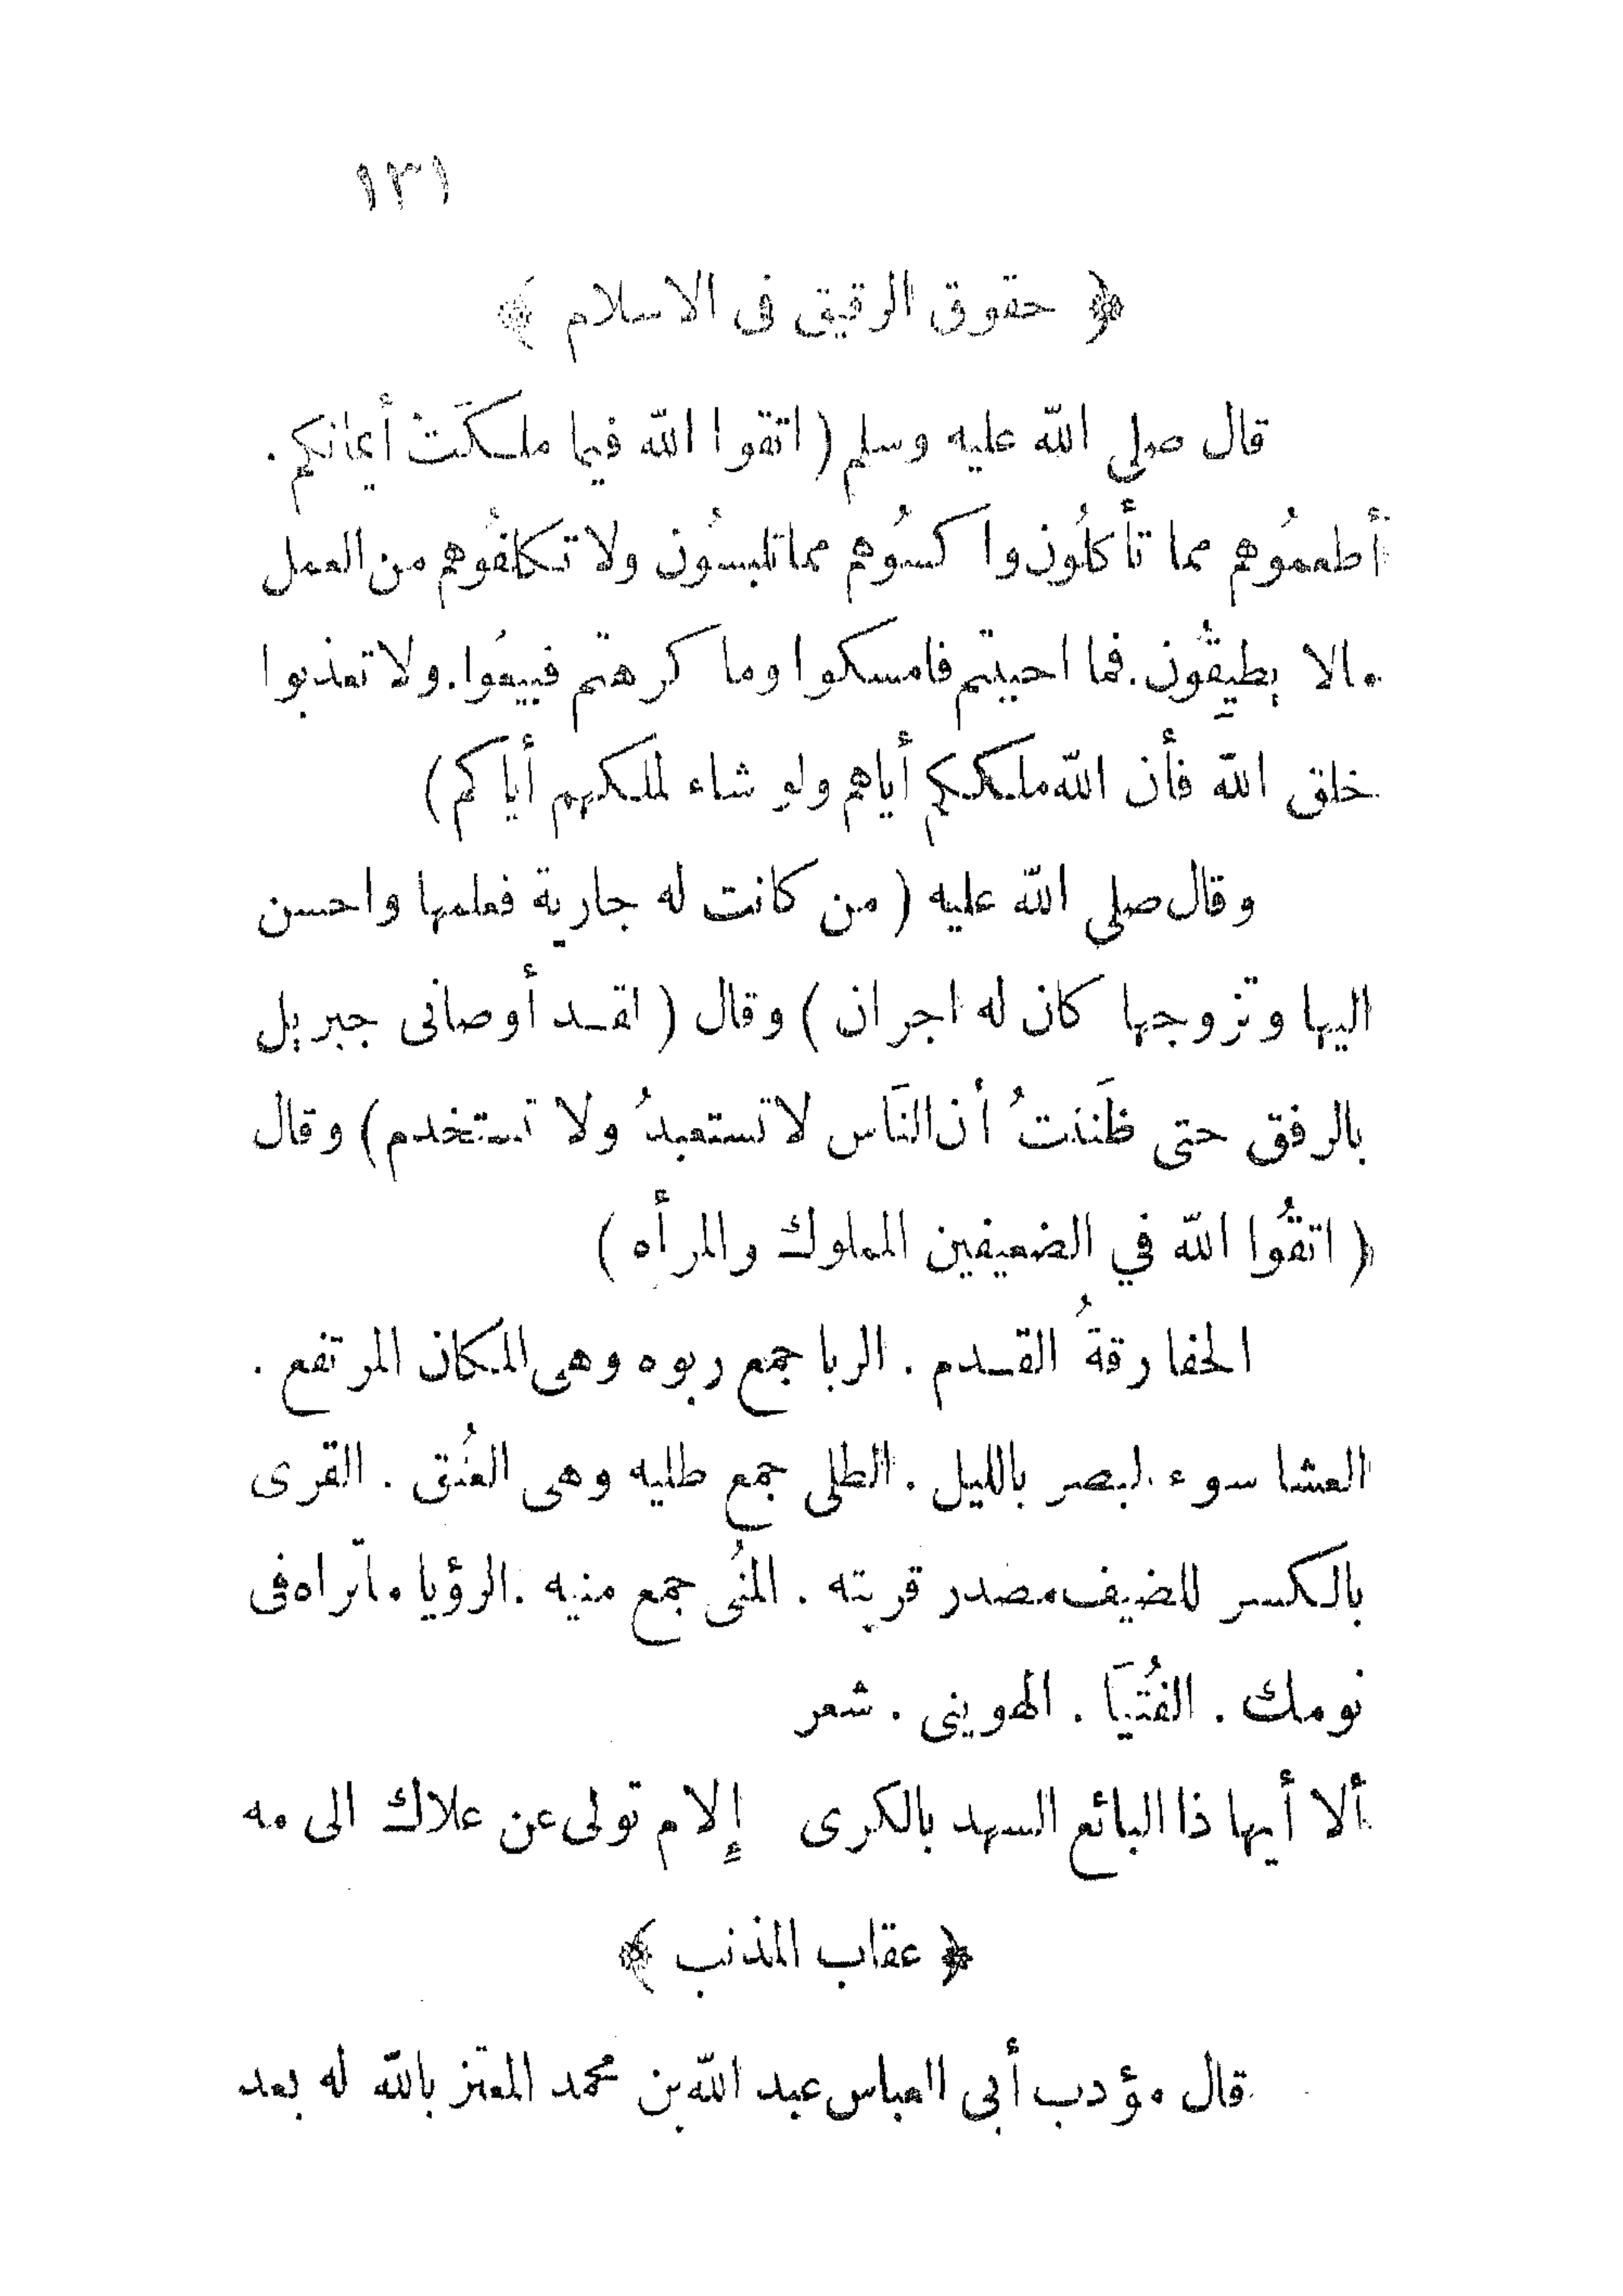 ١٣١
﴿ حقوق الرقيق فى الاسلام ﴾
قال صلى الله عليه وسلم ( اتقوا الله فيما ملـكَتْ أيمانكم .
أطعمُوهم مما تأكلُون وا كسُوهم مما تلبسُون ولا تـكلفُوهم من العمل
مالا يطيقُون . فما احببتم فامسكوا وما كرهتم فبيعُوا . ولا تعذبوا
خلق الله فأن الله ملـككم أياهم ولو شاء لملـكهم أياكم )
وقال صلى الله عليه ( من كانت له جارية فعلمها واحسن
اليها وتزوجها كان له اجران ) وقال ( لقـد أوصانى جبريل
بالرفق حتى ظَننتُ أن النَاس لا تستعبدُ ولا تستخدم ) وقال
( اتقُوا الله في الضعيفين المملوك والمرأه )
الحفا رقةُ القـدم . الربا جمع ربوه وهى المـكان المرتفع .
العشا سوء البصر بالليل . الطلى جمع طليه وهى العنُق . القرى
بالـكسر للضيف مصدر قريته . المنُى جمع منيه . الرؤيا ماتراه فى
نومك . الفُتيَا . الهوينى . شعر
ألا أيها ذا البائع السهد بالكرى إلام تولى عن علاك الى مه
﴿ عقاب المذنب ﴾
قال مؤدب أبى العباس عبد الله بن محمد المعتز بالله له بعد